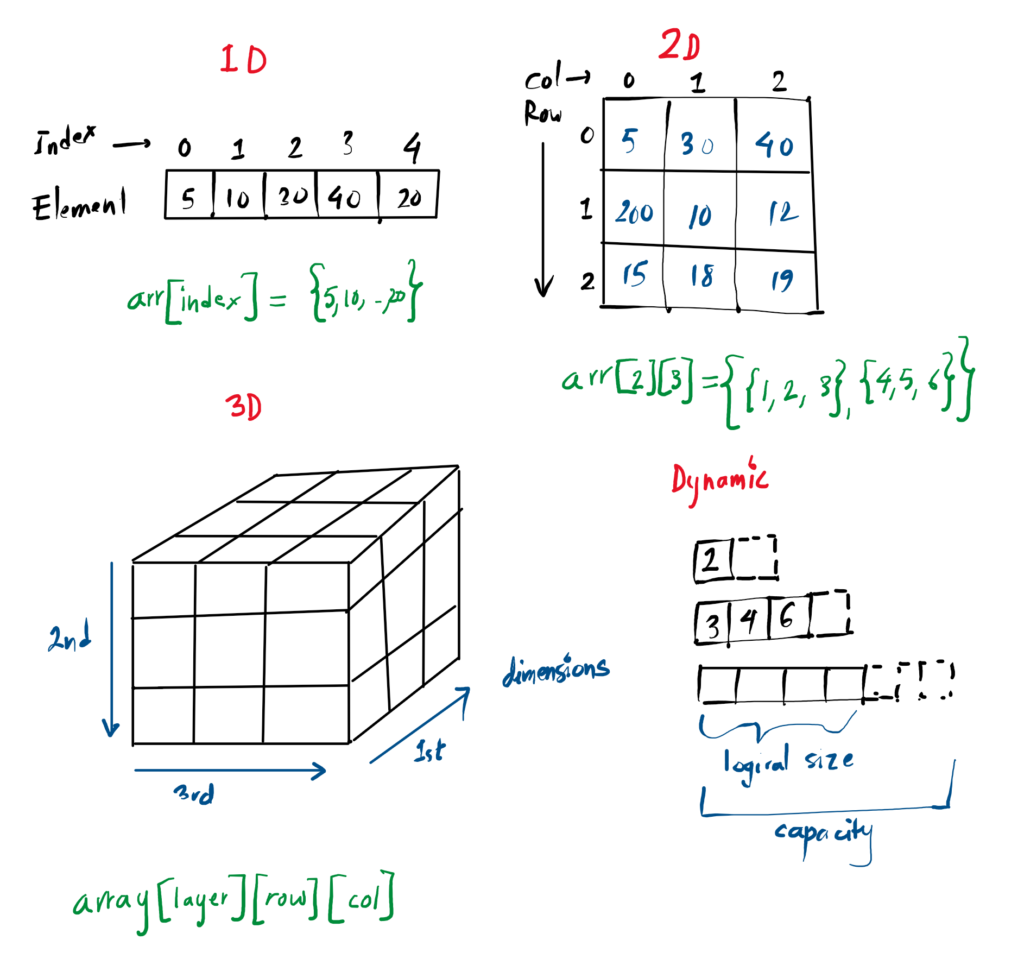 1D
Index → 0 1 2 3 4
Element 5 10 30 40 20
arr[index] = {5,10, -,20}
2D
col→ 0 1 2
Row
0 5 30 40
1 200 10 12
2 15 18 19
arr[2][3]={{1, 2, 3},{4,5, 6}}
3D
2nd
3rd
1st
dimensions
array[layer][row][col]
Dynamic
2
3 4 6
logical size
capacity